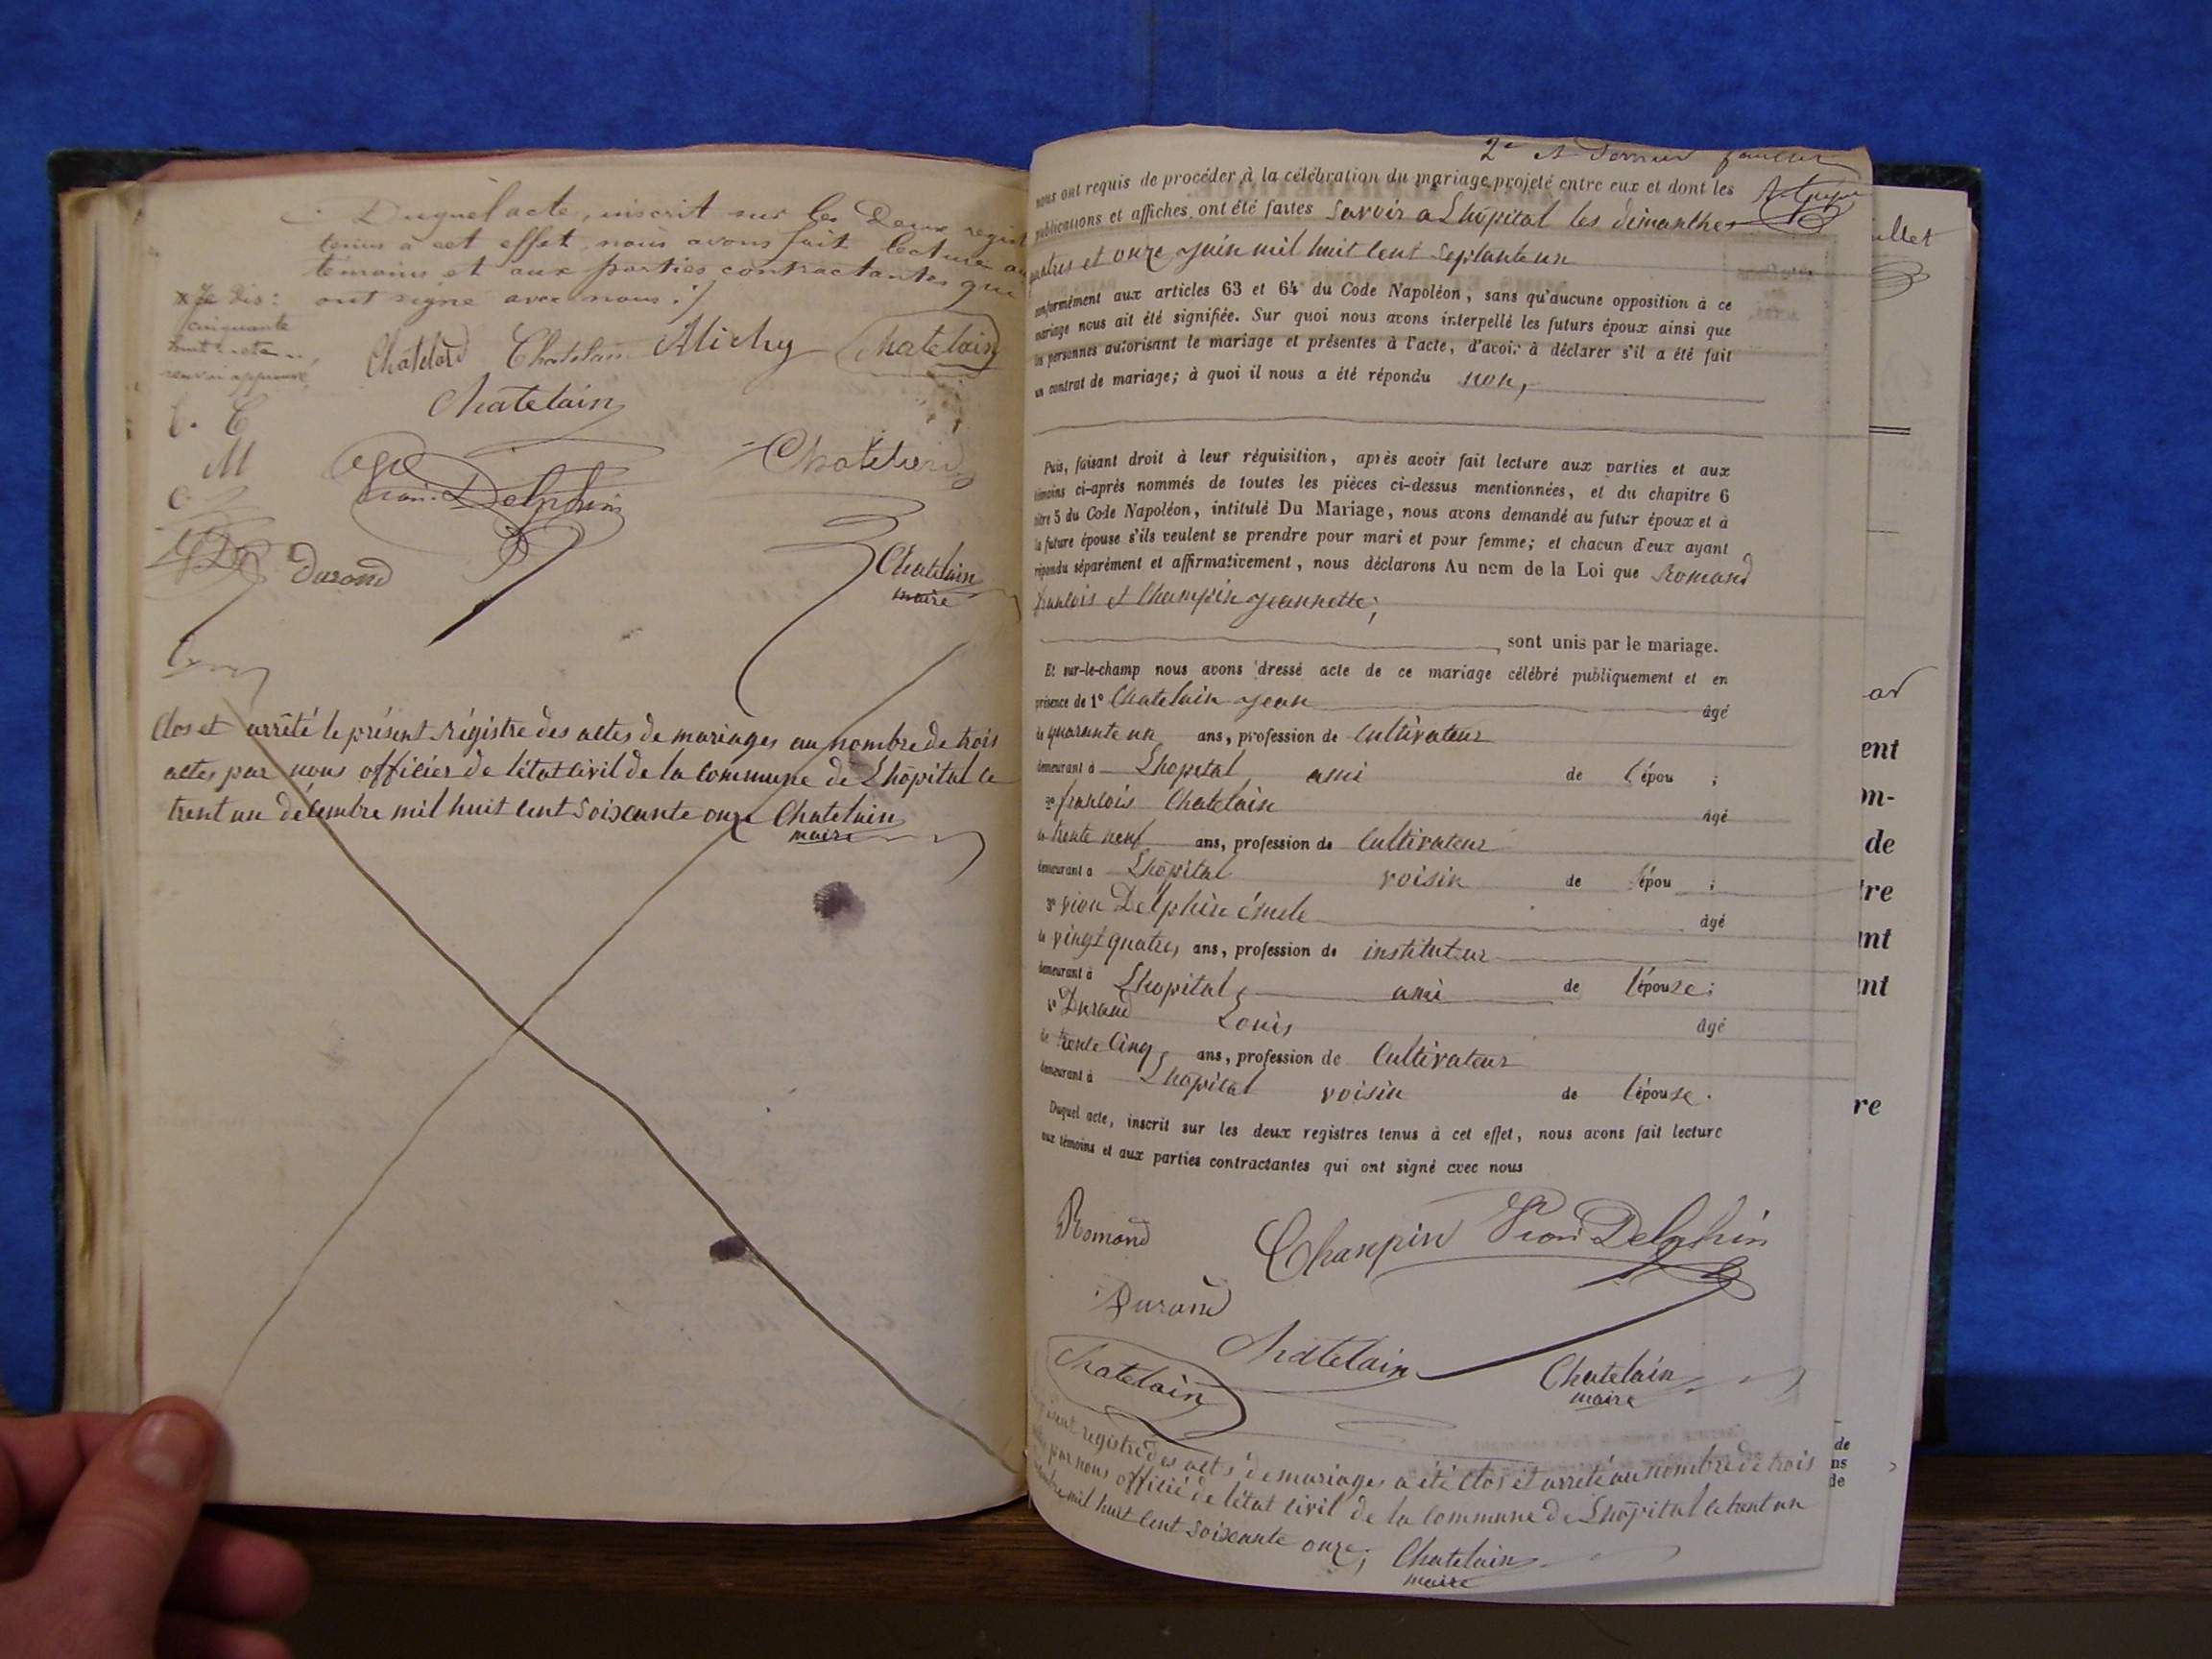 Duquel acte, inscrit sur les deux regist
tenus à cet effet, nous avons fait lecture au
témoins et aux parties contractantes qui
ont signé avec nous ./
x Je dis:
cinquante
renvoi approuvé
Chatelard Chatelain Michy Chatelain
Chatelain
C. C
M
Vion Delphin
Chatelard
Durand
Chatelain
maire
Clos et arrêté le présent régistre des actes de mariages au nombre de trois
actes par nous officier de l'état civil de la commune de Lhôpital le
trent un décembre mil huit cent soixante onze Chatelain
maire
2e et dernier feuillet
nous ont requis de procéder à la célébration du mariage projeté entre eux et dont les
publications et affiches ont été faites Savoir a Lhôpital les dimanches
quatres et onze Juin mil huit cent Septante un
conformément aux articles 63 et 64 du Code Napoléon, sans qu'aucune opposition à ce
mariage nous ait été signifiée. Sur quoi nous avons interpellé les futurs époux ainsi que
les personnes autorisant le mariage et présentes à l'acte, d'avoir à déclarer s'il a été fait
un contrat de mariage; à quoi il nous a été répondu non,
Puis, faisant droit à leur réquisition, après avoir fait lecture aux parties et aux
témoins ci-après nommés de toutes les pièces ci-dessus mentionnées, et du chapitre 6
titre 5 du Code Napoléon, intitulé Du Mariage, nous avons demandé au futur époux et à
la future épouse s'ils veulent se prendre pour mari et pour femme; et chacun d'eux ayant
répondu séparément et affirmativement, nous déclarons Au nom de la Loi que Romand
francois et Champin Jeannette;
sont unis par le mariage.
Et sur-le-champ nous avons dressé acte de ce mariage célébré publiquement et en
présence de 1° Chatelain Jean âgé
de quarante un ans, profession de Cultivateur
demeurant à Lhopital ami de l'épou ;
2° francois Chatelain âgé
de trente neuf ans, profession de Cultivateur
demeurant à Lhôpital voisin de l'épou ;
3° vion Delphin émile âgé
de vingt quatre, ans, profession de instituteur
demeurant à Lhopital, ami de l'épouse;
4° Durand Louis âgé
de trente cinq ans, profession de Cultivateur
demeurant à Lhôpital voisin de l'épouse.
Duquel acte, inscrit sur les deux registres tenus à cet effet, nous avons fait lecture
aux témoins et aux parties contractantes qui ont signé avec nous
Romand Champin Vion Delphin
Durand
Chatelain Chatelain Chatelain
maire
présent registre des acts de mariages a été clos et arreté au nombre de trois
par nous officié de l'état civil de la commune de Lhôpital le trent un
mil huit cent soixante onze; Chatelain
maire